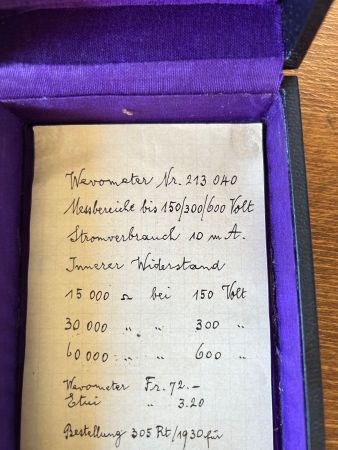 Wevometer Nr. 213 040
Messbereiche bis 150/300/600 Volt
Stromverbrauch 10 m A.
Innerer Widerstand
15 000 Ω bei 150 Volt
30 000 „ „ 300 „
60 000 „ „ 600 „
Wevometer Fr. 72.-
Etui „ 3.20
Bestellung 305 Rt/1930 für